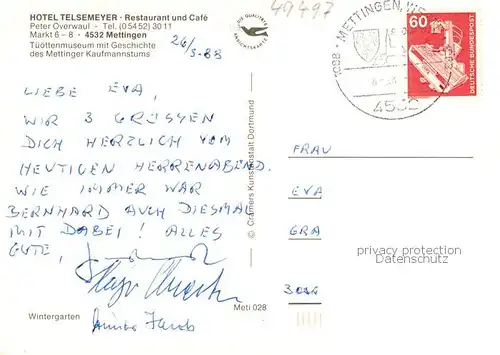 HOTEL TELSEMEYER · Restaurant und Café
Peter Overwaul · Tel. (05452) 3011
Markt 6–8 · 4532 Mettingen
Tüöttenmuseum mit Geschichte
des Mettinger Kaufmannstums
26/5-88
49497
METTINGEN, WE
1088
4532
60
DEUTSCHE BUNDESPOST
LIEBE EVA,
WIR 3 GRÜSSEN
DICH HERZLICH VOM
HEUTIGEN HERRENABEND.
WIE IMMER WAR
BERNHARD AUCH DIESMAL
MIT DABEI! ALLES
GUTE,
© Cramers Kunstanstalt Dortmund
FRAU
EVA
GRA
privacy protection
Datenschutz
Wintergarten
Meti 028